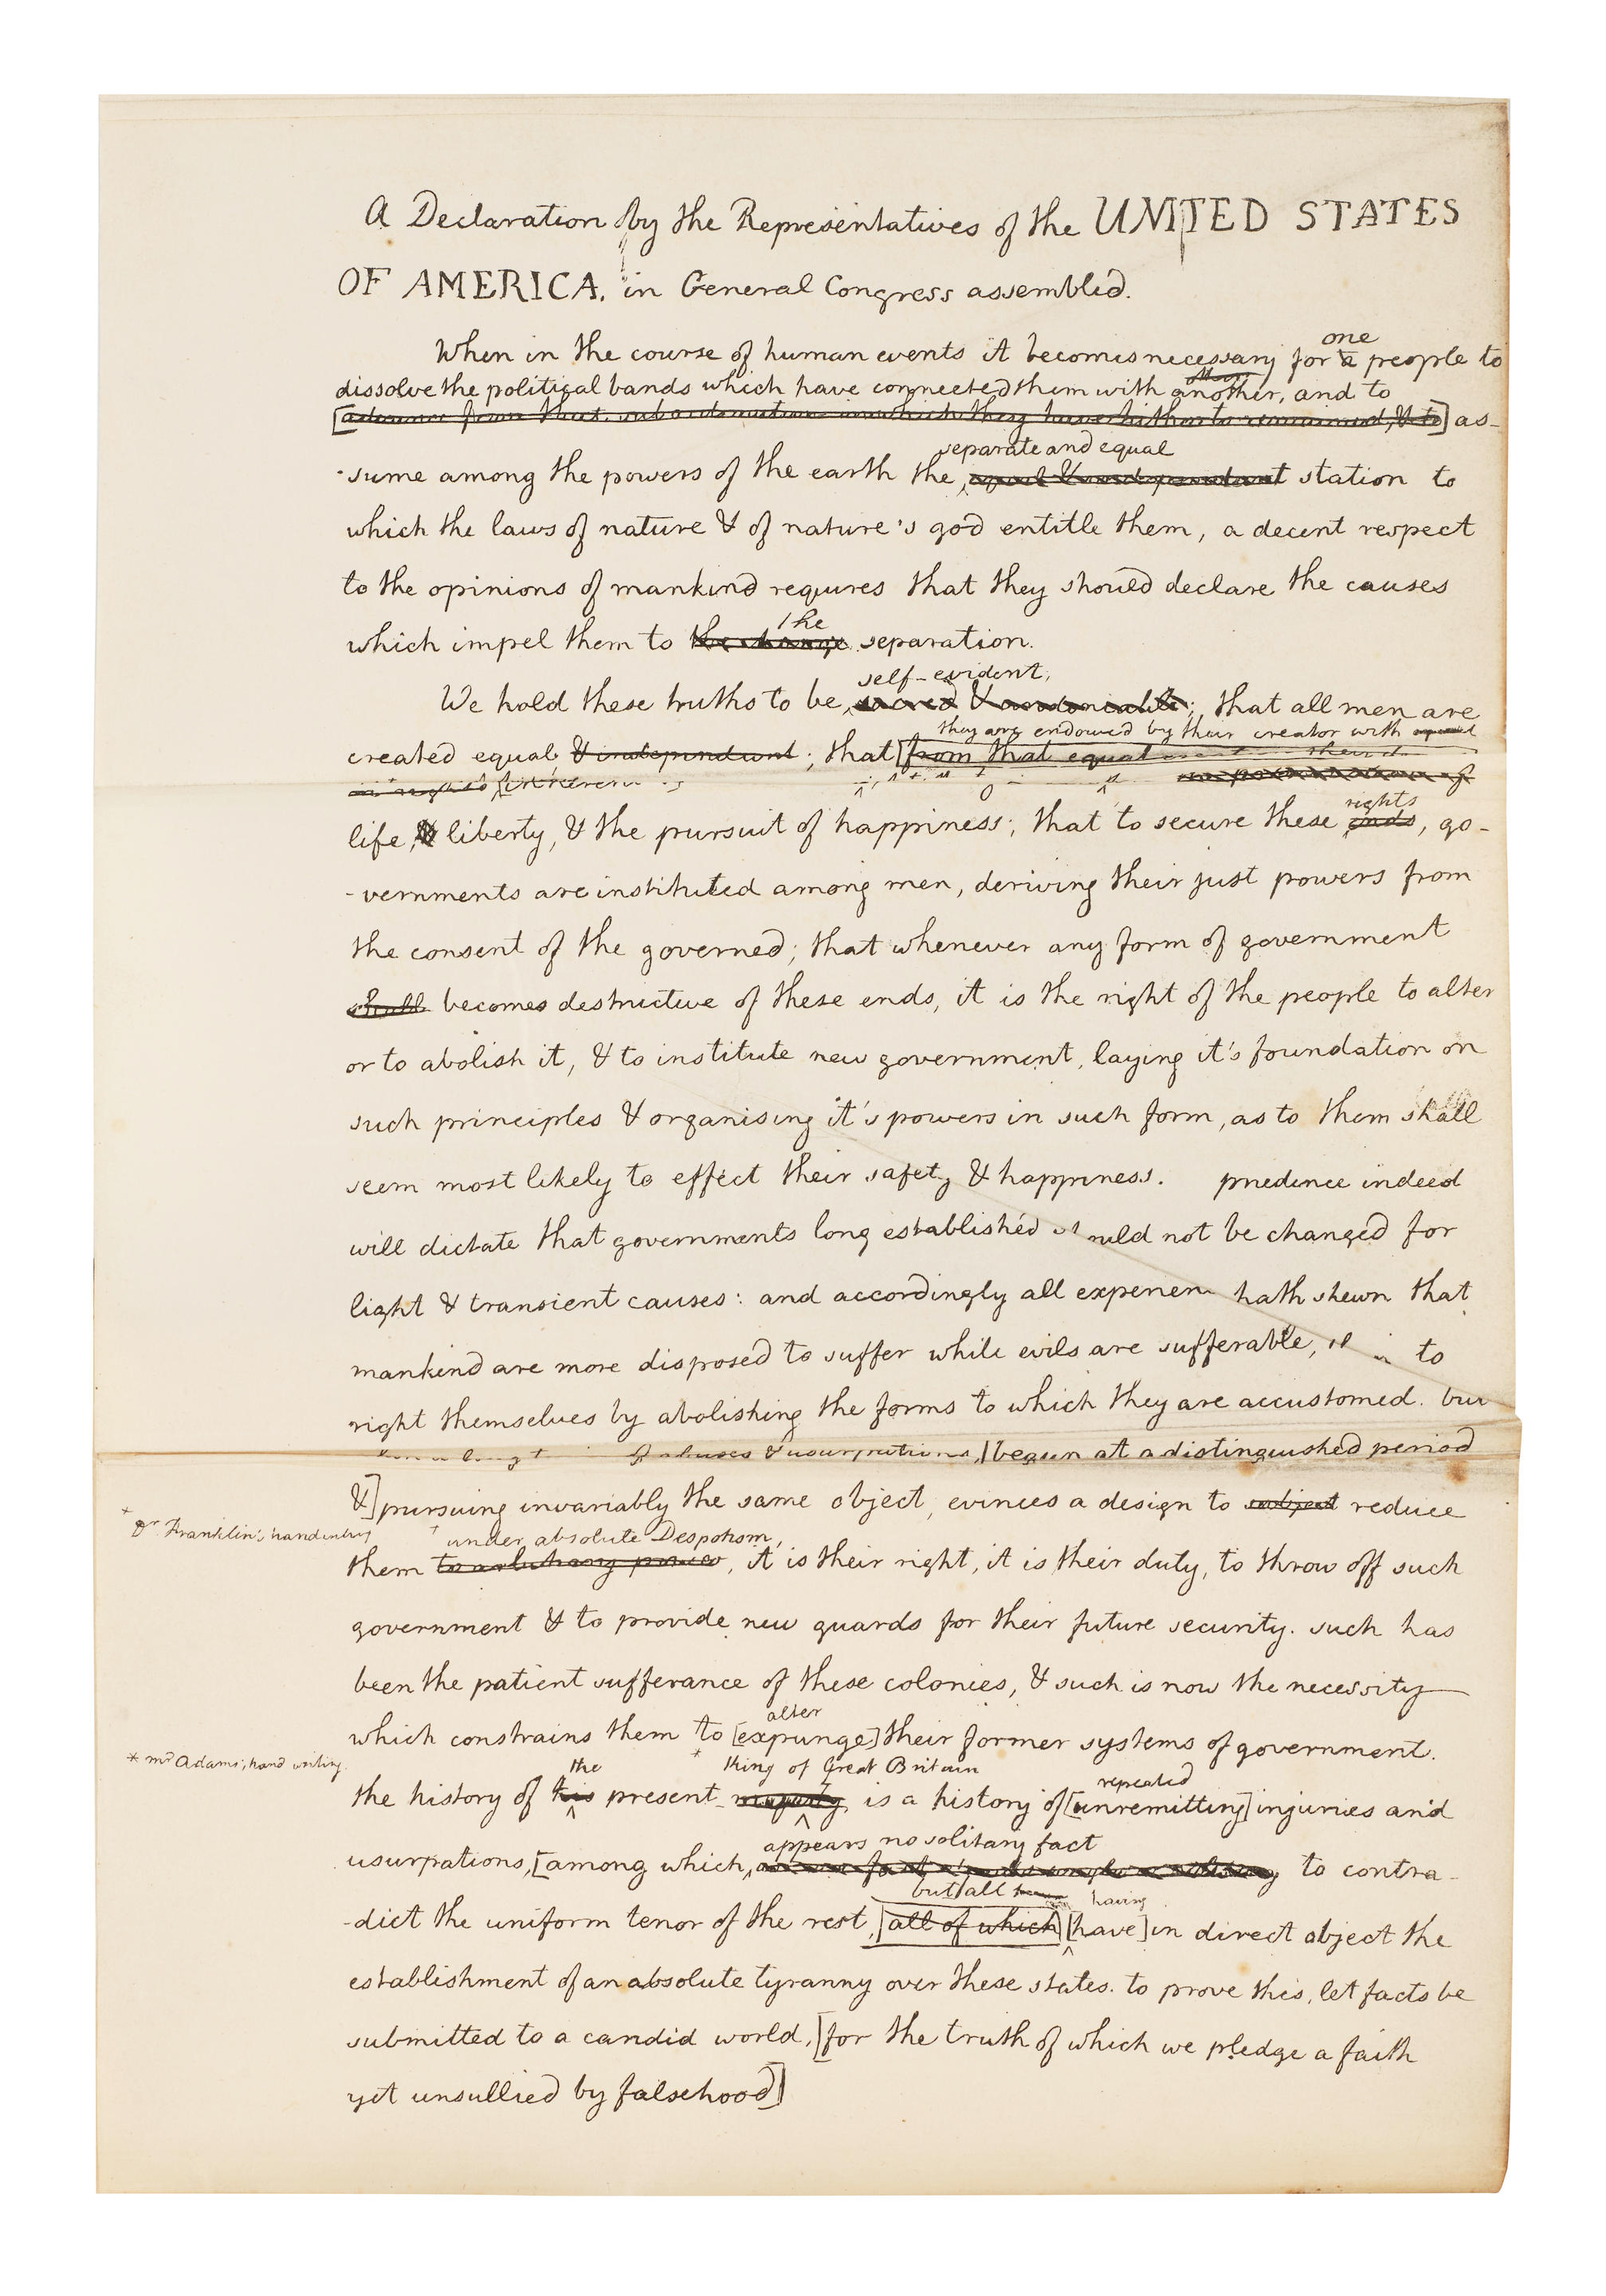 A Declaration by the Representatives of the UNITED STATES
OF AMERICA, in General Congress assembled.
one
When in the course of human events it becomes necessary for a people to
dissolve the political bands which have connected them with another, and to
[advance from that subordination in which they have hitherto remained, & to] as-
separate and equal
-sume among the powers of the earth the equal & independant station to
which the laws of nature & of nature's god entitle them, a decent respect
to the opinions of mankind requires that they should declare the causes
the
which impel them to the change separation.
self-evident,
We hold these truths to be sacred & undeniable; that all men are
they are endowed by their creator with
created equal & independent; that [from that equal
rights inherent
rights
life, & liberty, & the pursuit of happiness; that to secure these ends, go-
-vernments are instituted among men, deriving their just powers from
the consent of the governed; that whenever any form of government
shall becomes destructive of these ends, it is the right of the people to alter
or to abolish it, & to institute new government, laying it's foundation on
such principles & organising it's powers in such form, as to them shall
seem most likely to effect their safety & happiness. prudence indeed
will dictate that governments long established should not be changed for
light & transient causes: and accordingly all experience hath shewn that
mankind are more disposed to suffer while evils are sufferable, to
right themselves by abolishing the forms to which they are accustomed. but
abuses & usurpations, [begun at a distinguished period
&] pursuing invariably the same object, evinces a design to subject reduce
* Dr. Franklin's handwriting
under absolute Despotism,
them to arbitrary power, it is their right, it is their duty, to throw off such
government & to provide new guards for their future security. such has
been the patient sufferance of these colonies, & such is now the necessity
alter
which constrains them to [expunge] their former systems of government.
* mr Adams's hand writing.
the king of Great Britain repeated
the history of his present majesty, is a history of [unremitting] injuries and
appears no solitary fact
usurpations, [among which, to contra-
but all having
-dict the uniform tenor of the rest, [all of which [have] in direct object the
establishment of an absolute tyranny over these states. to prove this, let facts be
submitted to a candid world, [for the truth of which we pledge a faith
yet unsullied by falsehood]